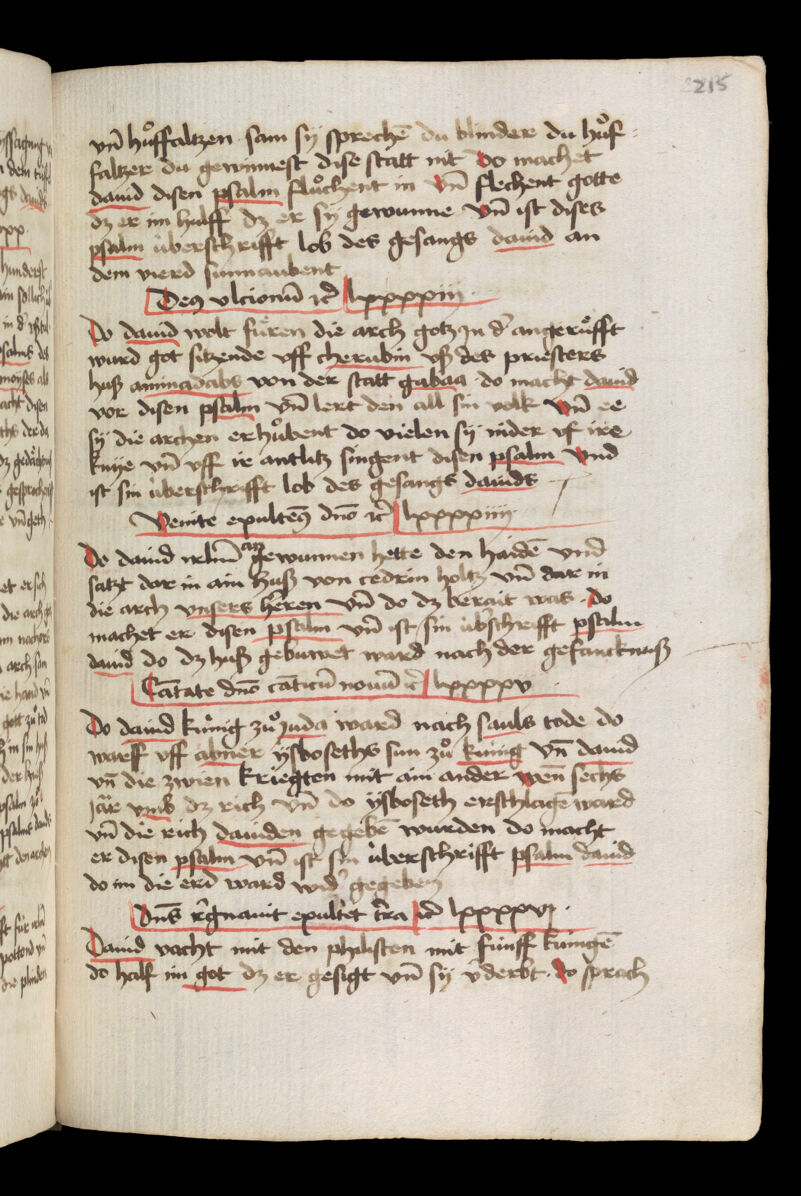 215
vn̄ hůffaltzen sam sÿ sprechē du blinder du hůf-
faltzer du gewinnest dise statt nit Do machet
dauid disen psalm flůchent in vn̄ flechent gotte
dz er im hulff dz er sÿ gewunne vn̄ ist dises
psalm überschrifft lob des gesangs dauid an
dem vierd sunnaubent
Deus vlcionū rc̄ lxxxxiij
Do dauid wolt fu̎ren die arch gotz In d' angeru̎fft
ward got sitzende vff cherubin vß des priesters
huß aminadabs von der statt gabaa do macht dauid
vor disen psalm vn̄ lert den all sin volk Vn̄ ee
sÿ die archen erhůbent do vielen sÿ nider vf ire
knÿe vn̄ vff ir antlitz singent disen psalm vnd
ist sin überschrifft lob des gesangs dauids
Venite exulte9 dn̄o rc̄ lxxxxiiij
Do dauid irlm̄ an gewunnen hette den haidē vnd
satzt dar in ain huß von cedrin holtz vn̄ dar in
die arch vnsers herren vn̄ do dz berait was. do
machet er disen psalm vn̄ ist sin üb'schrifft psalm
dauid do dz huß gebuwet ward nach der gefancknuß
Cātate dn̄o cāticū nouū rc̄ lxxxxv
Do dauid künig zů Juda ward nach sauls tode do
warff vff abner ÿsboseths sun zů kunig vn̄ dauid
vn̄ die zwien kriegten mit ain ander wen̄ sechs
Jare vmb dz rich vn̄ do ÿsboseth erschlagē ward
vn̄ die rich dauiden gegebē wurden do macht
er disen psalm vn̄ ist sin überschrifft psalm dauid
do im die erd ward wid' gegeben
Dn̄s regnauit exultet t'ra rc̄ lxxxxvj.
Dauid vacht mit den philisten mit fünff künigē
do half im got dz er gesigt vn̄ sÿ v'derbt. do sprach